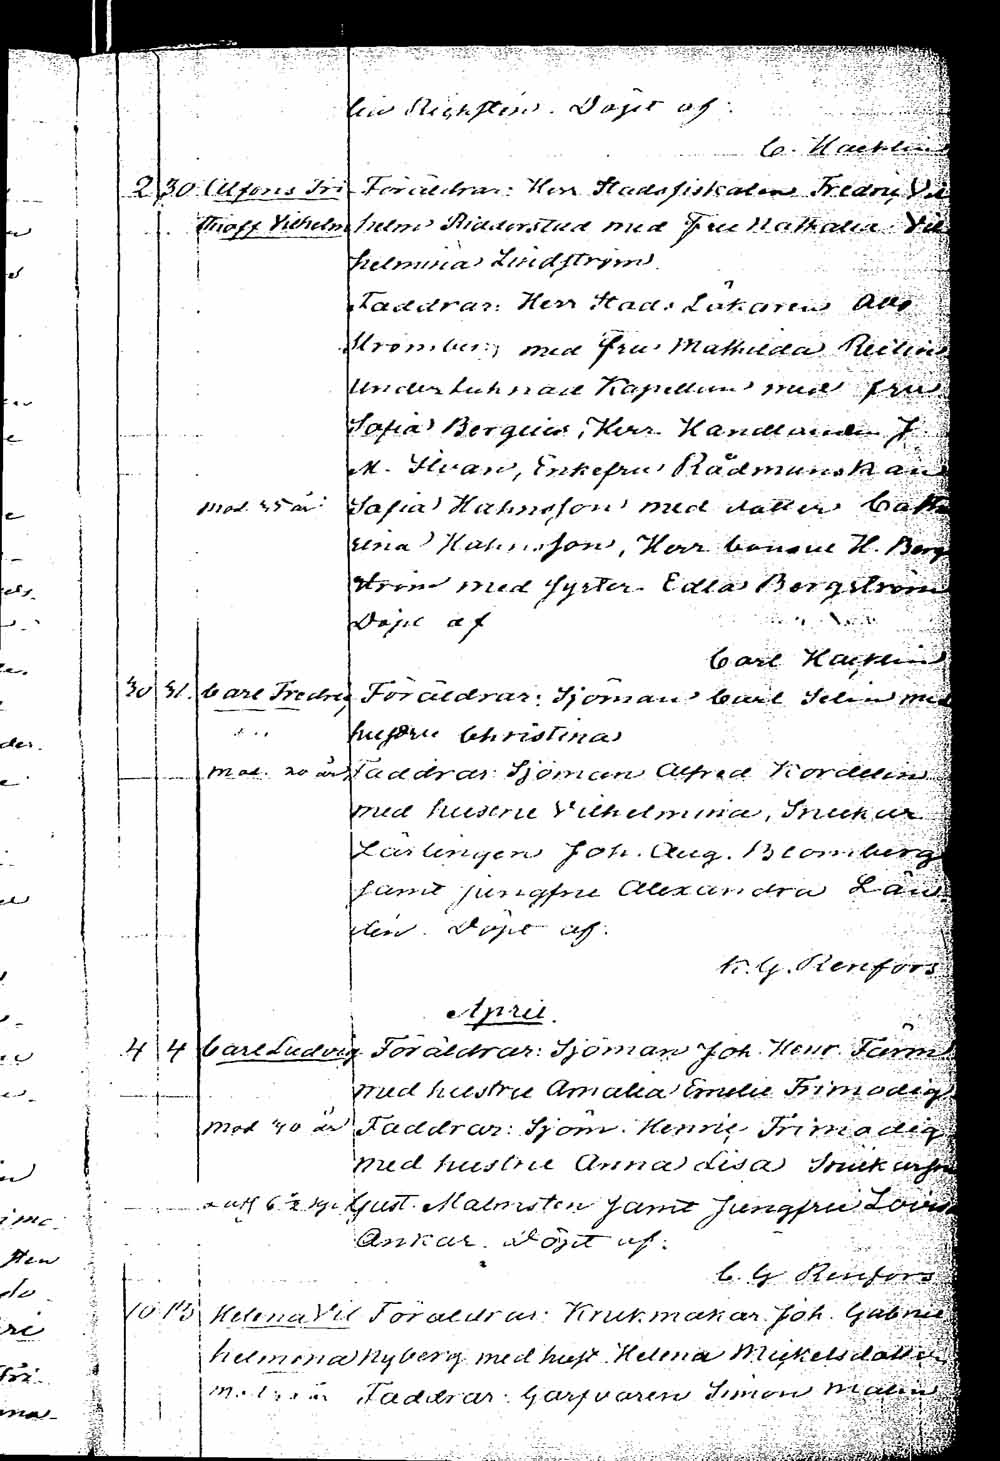 Döpt af:
C. Hacklin
2 30 Alfons Tri Föräldrar: Herr Stadsfiskalen Fredric Vil
thioff Vilhelm helm Ridderstad med fru Nathalia Vil
helmina Lindström
Faddrar: Herr Stads Läkaren
Strömberg med fru Mathilda
Kapellan med fru
Sofia Bergius, Herr Handlanden J.
M. Silvan, Enkefru Rådmanskan
mod. 35 år Sofia Hahnsson med dotter Catha
rina Hahnsson, Herr Consul H. Berg
ström med syster Edla Bergström
Döpt af
Carl Hacklin
30 31. Carl Fredric Föräldrar: Sjöman Carl Selin med
hustru Christina
mod. 20 år Faddrar: Sjöman Alfred Kordelin
med hustru Vilhelmina, Snickar
Lärlingen Joh. Aug. Blomberg
samt jungfru Alexandra Län
dén. Döpt af:
K. G. Renfors
April.
4 4 Carl Ludvig Föräldrar: Sjöman Joh. Henr. Färm
med hustru Amalia Emelie Frimodig
mod 30 år Faddrar: Sjöm. Henric Frimodig
med hustru Anna Lisa
Gust. Malmsten samt Jungfru Lovisa
Ankar. Döpt af:
C. G. Renfors
10 Helena Vil Föräldrar: Krukmakar Joh. Gabriel
helmina Nyberg med hust. Helena Mickelsdotter
Faddrar: Garfvaren Simon Malin